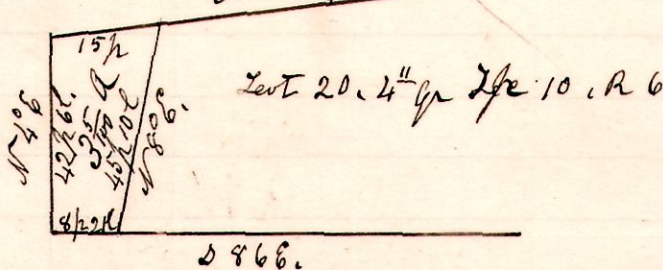 15 p
N 4° E
42 p 6 l.
3 5/100 A
45 p 10 l
N 8° E.
8 p 2 l
S 86 E.
Lot 20. 4" qr Tp 10, R 6